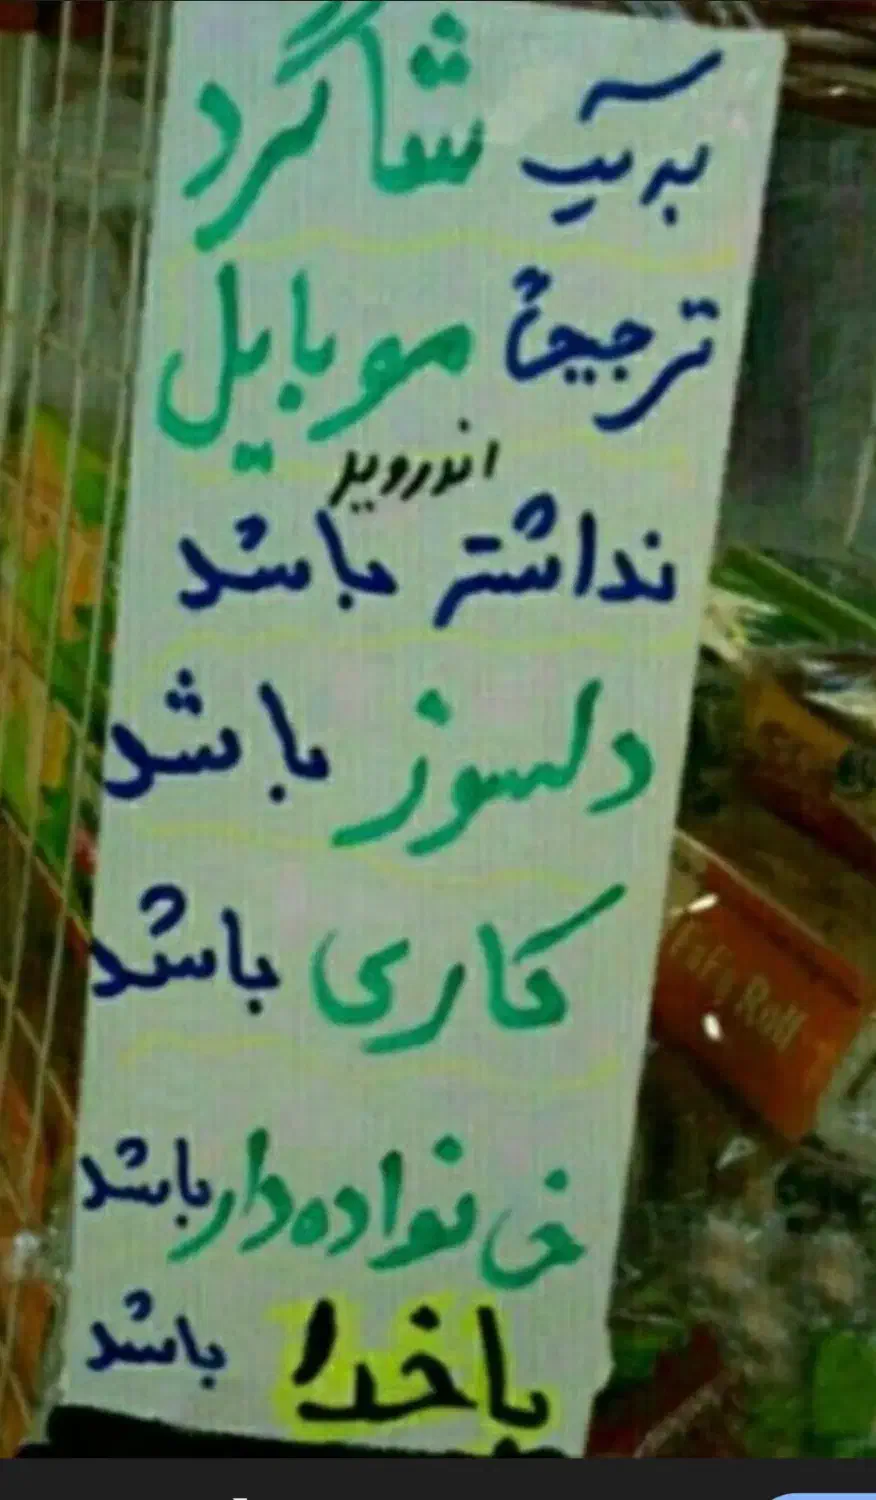 به یک شاگرد
ترجیحاً موبایل
اندروید
نداشته باشد
دلسوز باشد
کاری باشد
خانواده‌دار باشد
با خدا باشد
FaFy Roll